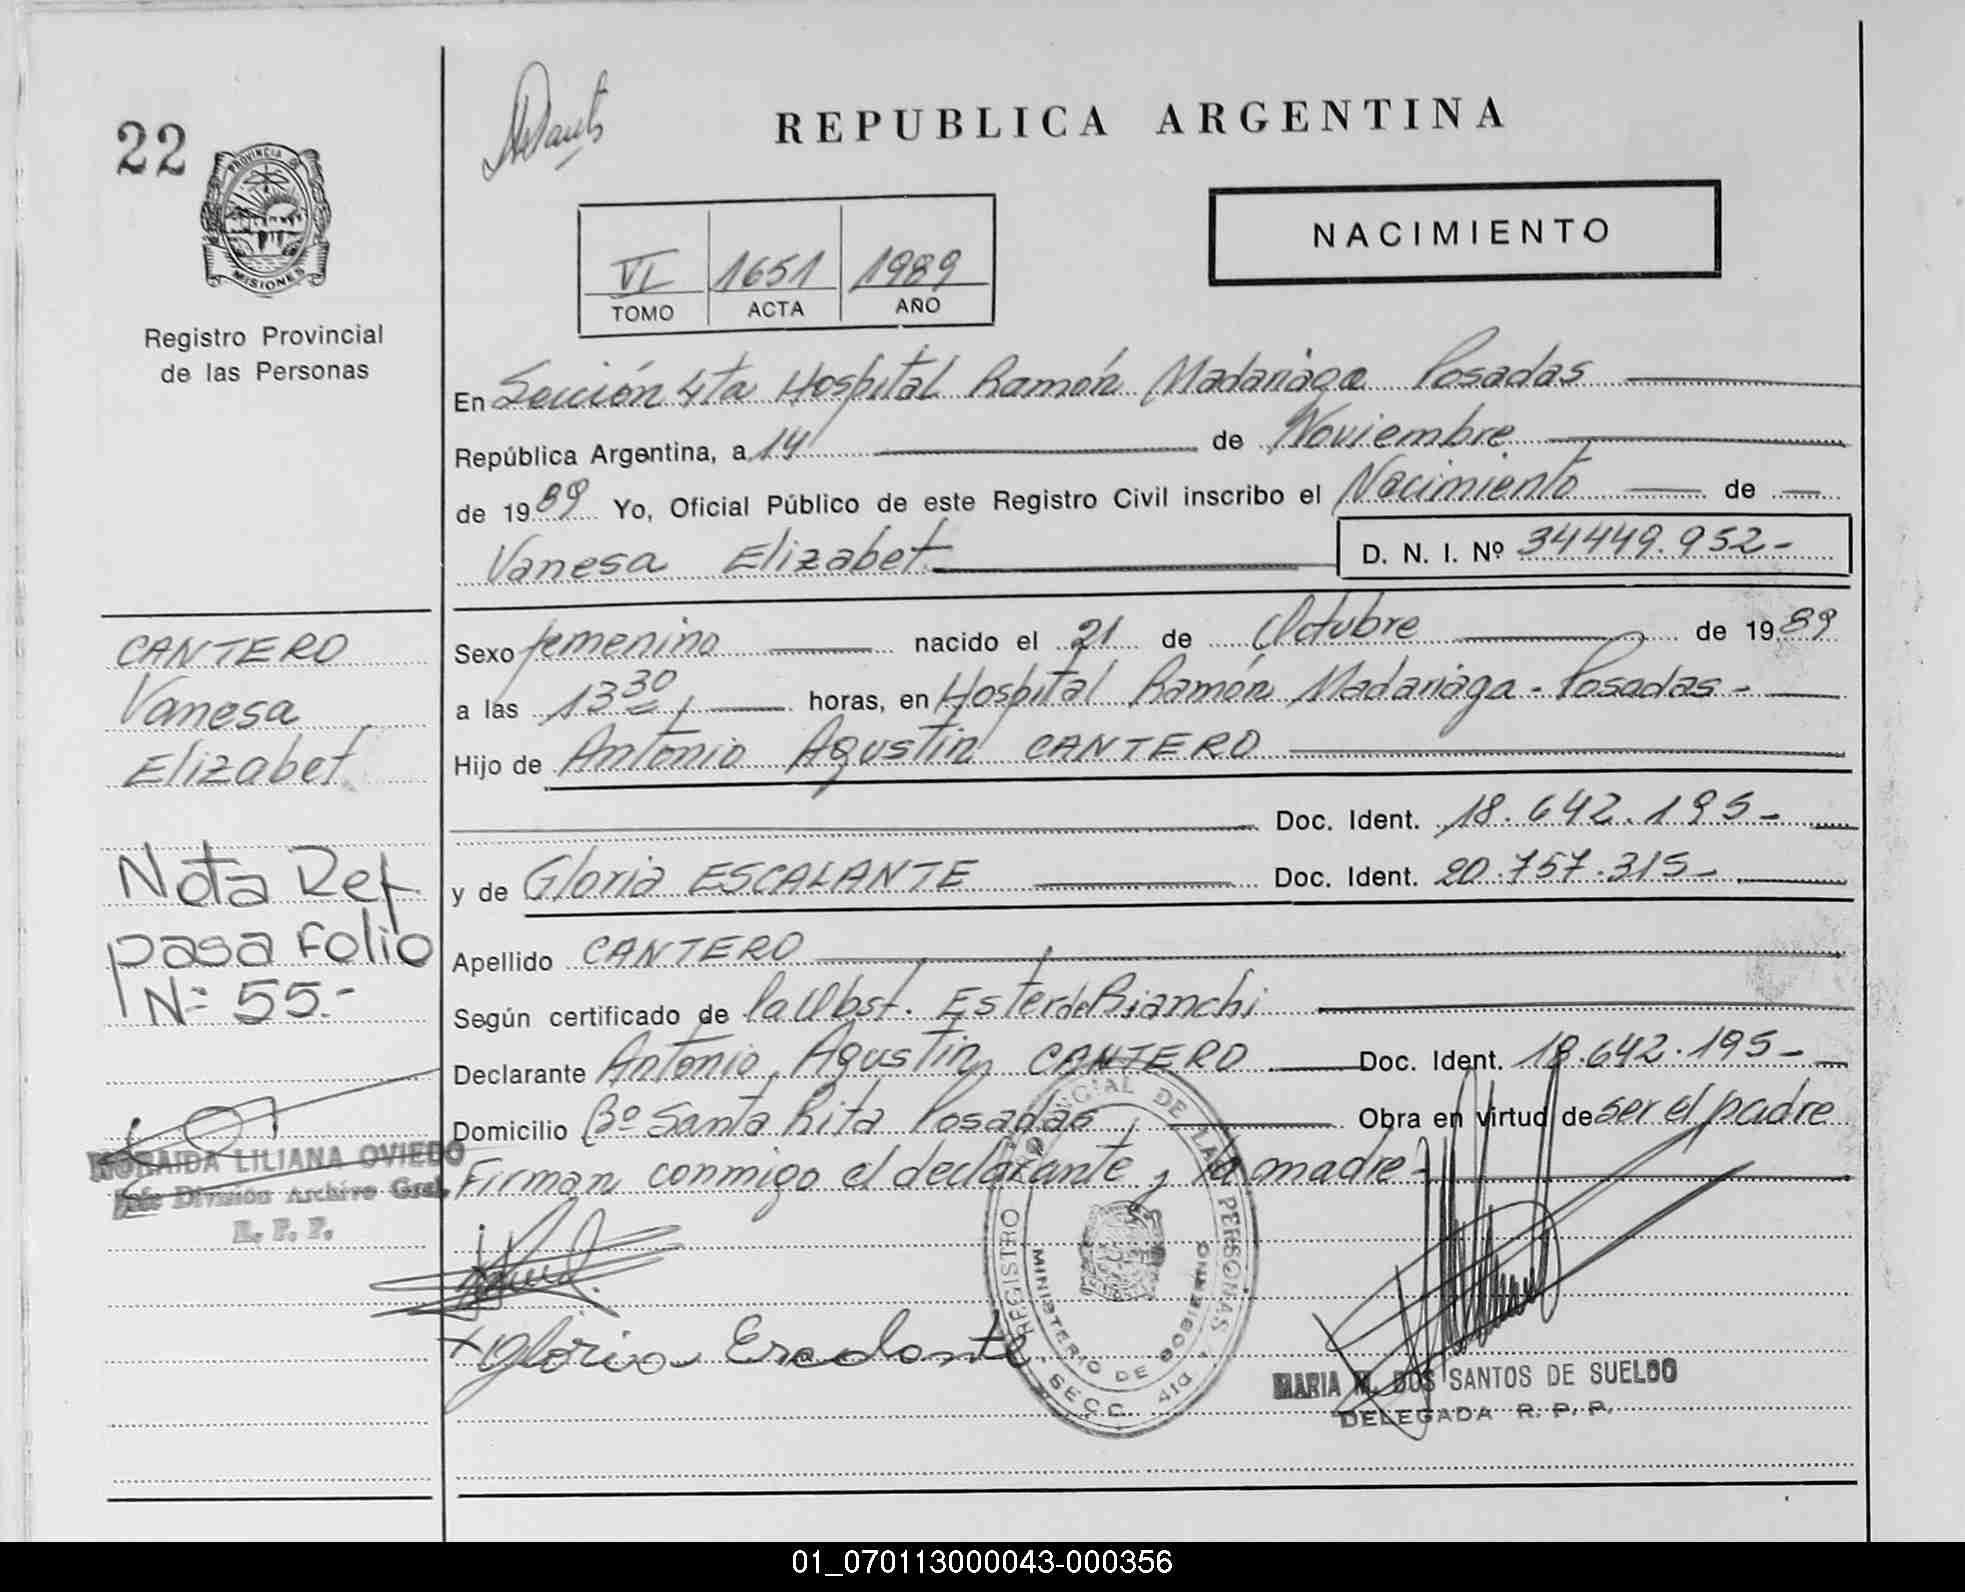 22
REPUBLICA ARGENTINA
PROVINCIA DE
MISIONES
NACIMIENTO
VI 1651 1989
TOMO ACTA AÑO
Registro Provincial
de las Personas
En Sección 4ta Hospital Ramón Madariaga Posadas
República Argentina, a 14 de Noviembre
de 1989 Yo, Oficial Público de este Registro Civil inscribo el Nacimiento de
Vanesa Elizabet D. N. I. Nº 34449.952-
CANTERO
Vanesa
Elizabet
Sexo femenino nacido el 21 de Octubre de 1989
a las 13 30 horas, en Hospital Ramón Madariaga - Posadas -
Hijo de Antonio Agustin CANTERO
Doc. Ident. 18.642.195-
y de Gloria ESCALANTE Doc. Ident. 20.757.315-
Nota Ref.
pasa Folio
Nº 55.-
Apellido CANTERO
Según certificado de la Obst. Ester de Bianchi
Declarante Antonio Agustin CANTERO Doc. Ident. 18.642.195-
Domicilio Bº Santa Rita Posadas Obra en virtud de ser el padre
Firman conmigo el declarante y la madre-
LILIANA OVIEDO
Jefe División Archivo Gral.
R. P. P.
REGISTRO PROVINCIAL DE LAS PERSONAS
MINISTERIO DE GOBIERNO
SECC. 4ta
Gloria Escalante
MARIA M. DOS SANTOS DE SUELDO
DELEGADA R. P. P.
01_070113000043-000356